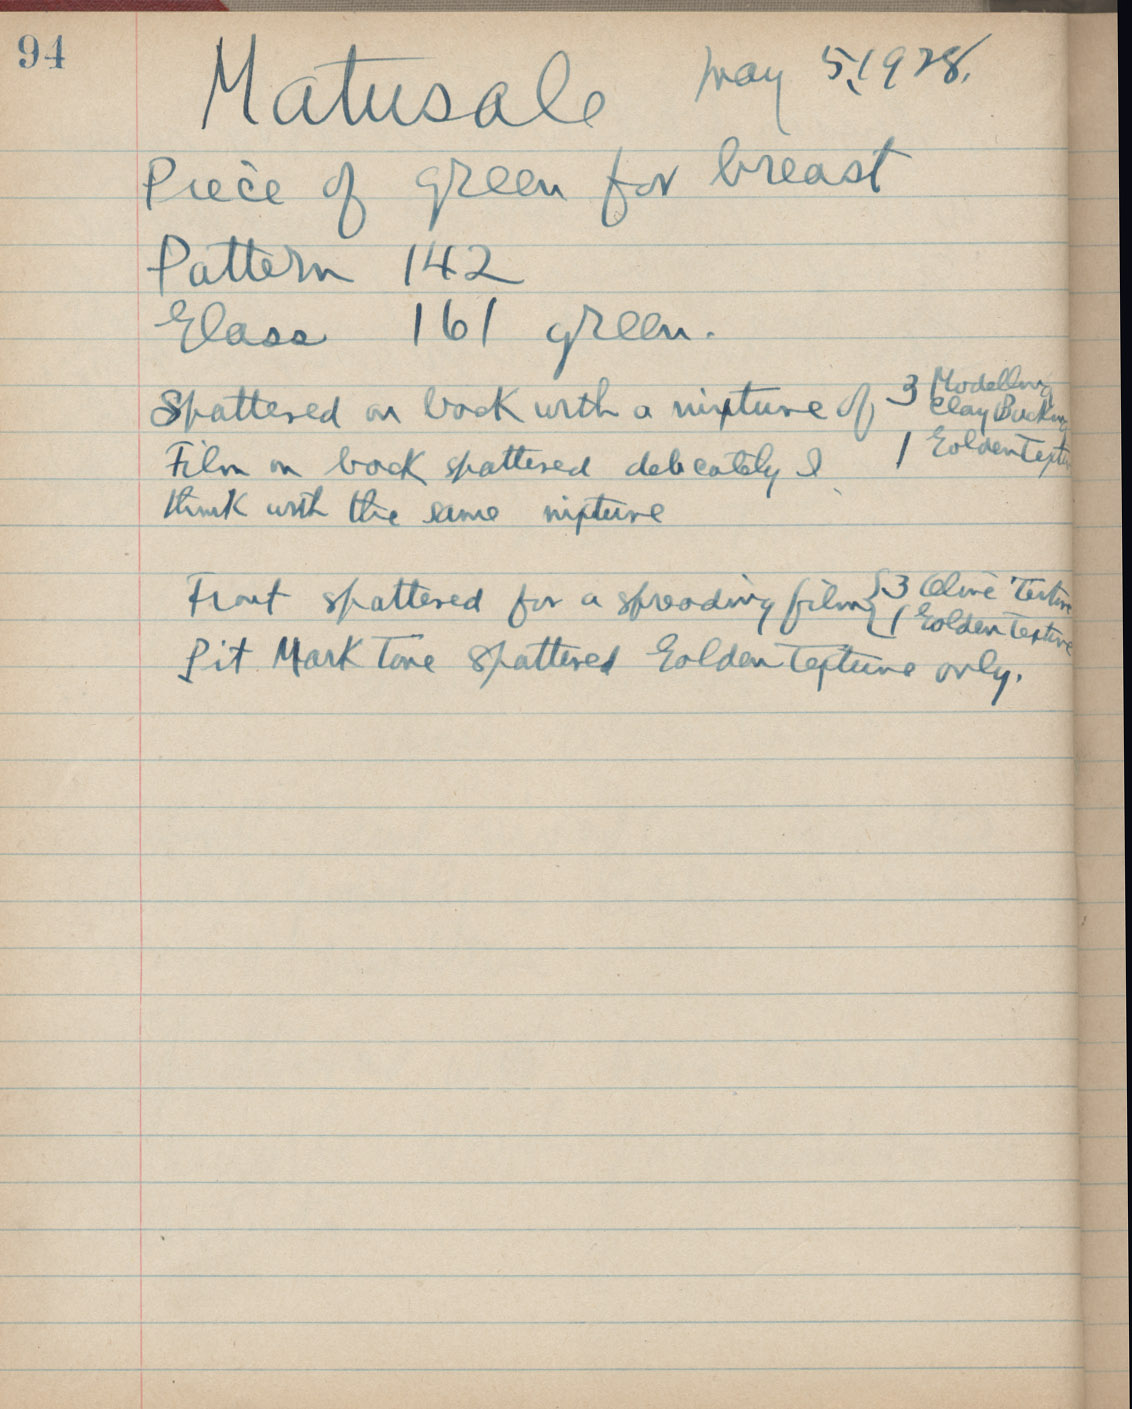 94
Matusale May 5, 1928.
Piece of green for breast
Pattern 142
Glass 161 green.
Spattered on back with a mixture of 3 Modelling
Clay Backing
Film on back spattered delicately I 1 Golden Textu
think with the same mixture
Front spattered for a spreading film { 3 Olive Texture
1 Golden Texture
Pit Mark Tone spattered Golden Texture only.